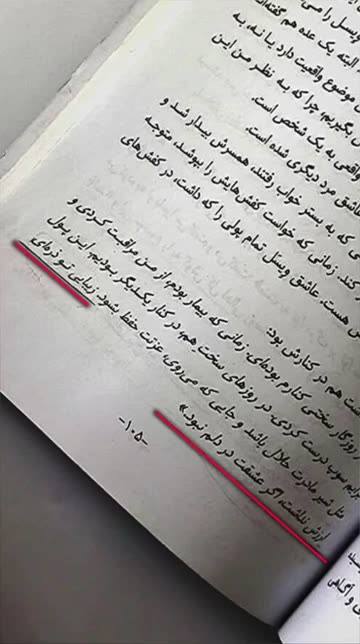 ویسل را می
البته یک عده هم گفته‌اند
موضوع واقعیت دارد یا نه، به
بگیریم، چرا که به نظر من این
واقعی به یک شخص است.
عاشق مرد دیگری شده است.
ی که به بستر خواب رفتند، همسرش بیدار شد و
کند. زمانی که خواست کفش‌هایش را بپوشد، متوجه
هست. عاشق ویسل تمام پولی را که داشت، در کفش‌های
هم در کنارش بود:
روزگار سختی کنارم بوده‌ای. زمانی که بیمار بودم، از من مراقبت کردی و
سوپ درست کردی. در روزهای سخت هم، در کنار یکدیگر بودیم. این پول
مثل شیر مادرت حلال باشد و جایی که می‌روی، عزتت حفظ شود. زیبایی تو ذره‌ای
ارزش نداشت، اگر عشقت در دلم نبود.»
-۱۰۵-
و آگاهی